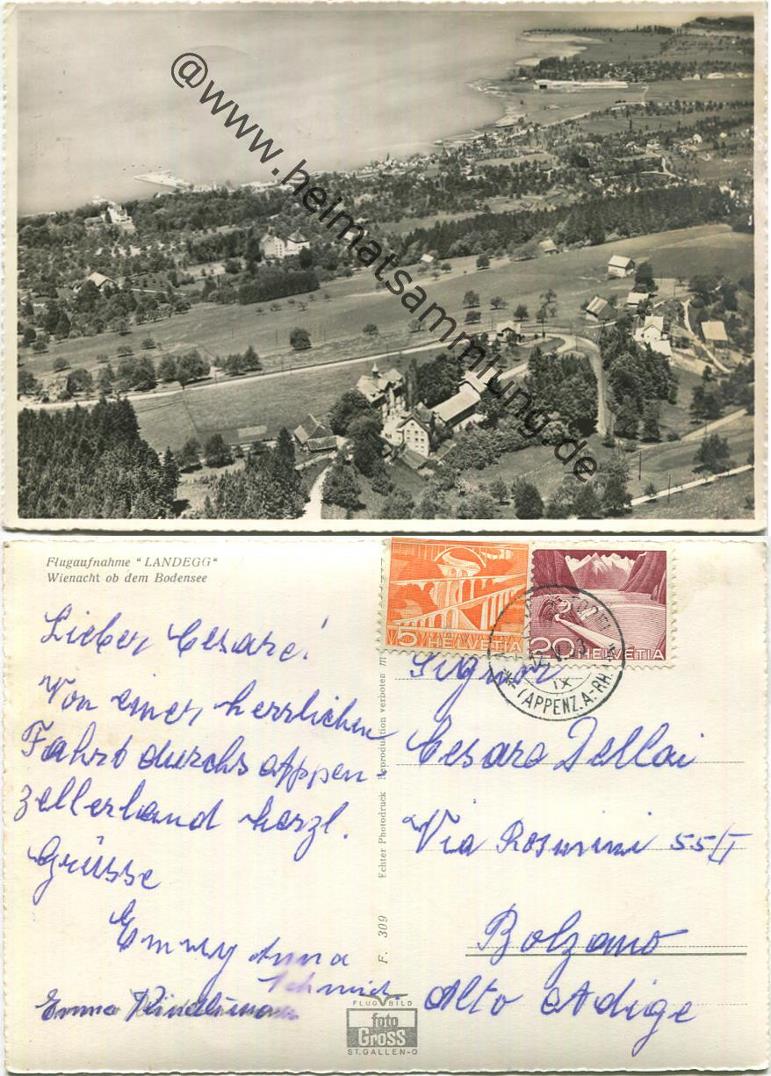 @www.heimatsammlung.de
Flugaufnahme "LANDEGG"
Wienacht ob dem Bodensee
5 HELVETIA
20 HELVETIA
(APPENZ. A.-RH.)
IX
Lieber Cesare!
Von einer herrlichen
Fahrt durchs Appen-
zellerland herzl.
Grüsse
Emmy Anna
Schmid.
Emma
Signor
Cesare Dellai
Via Rosmini 55/I
Bolzano
Alto Adige
Echter Photodruck Reproduktion verboten
F. 309
FLUG BILD
foto
GROSS
ST. GALLEN-O